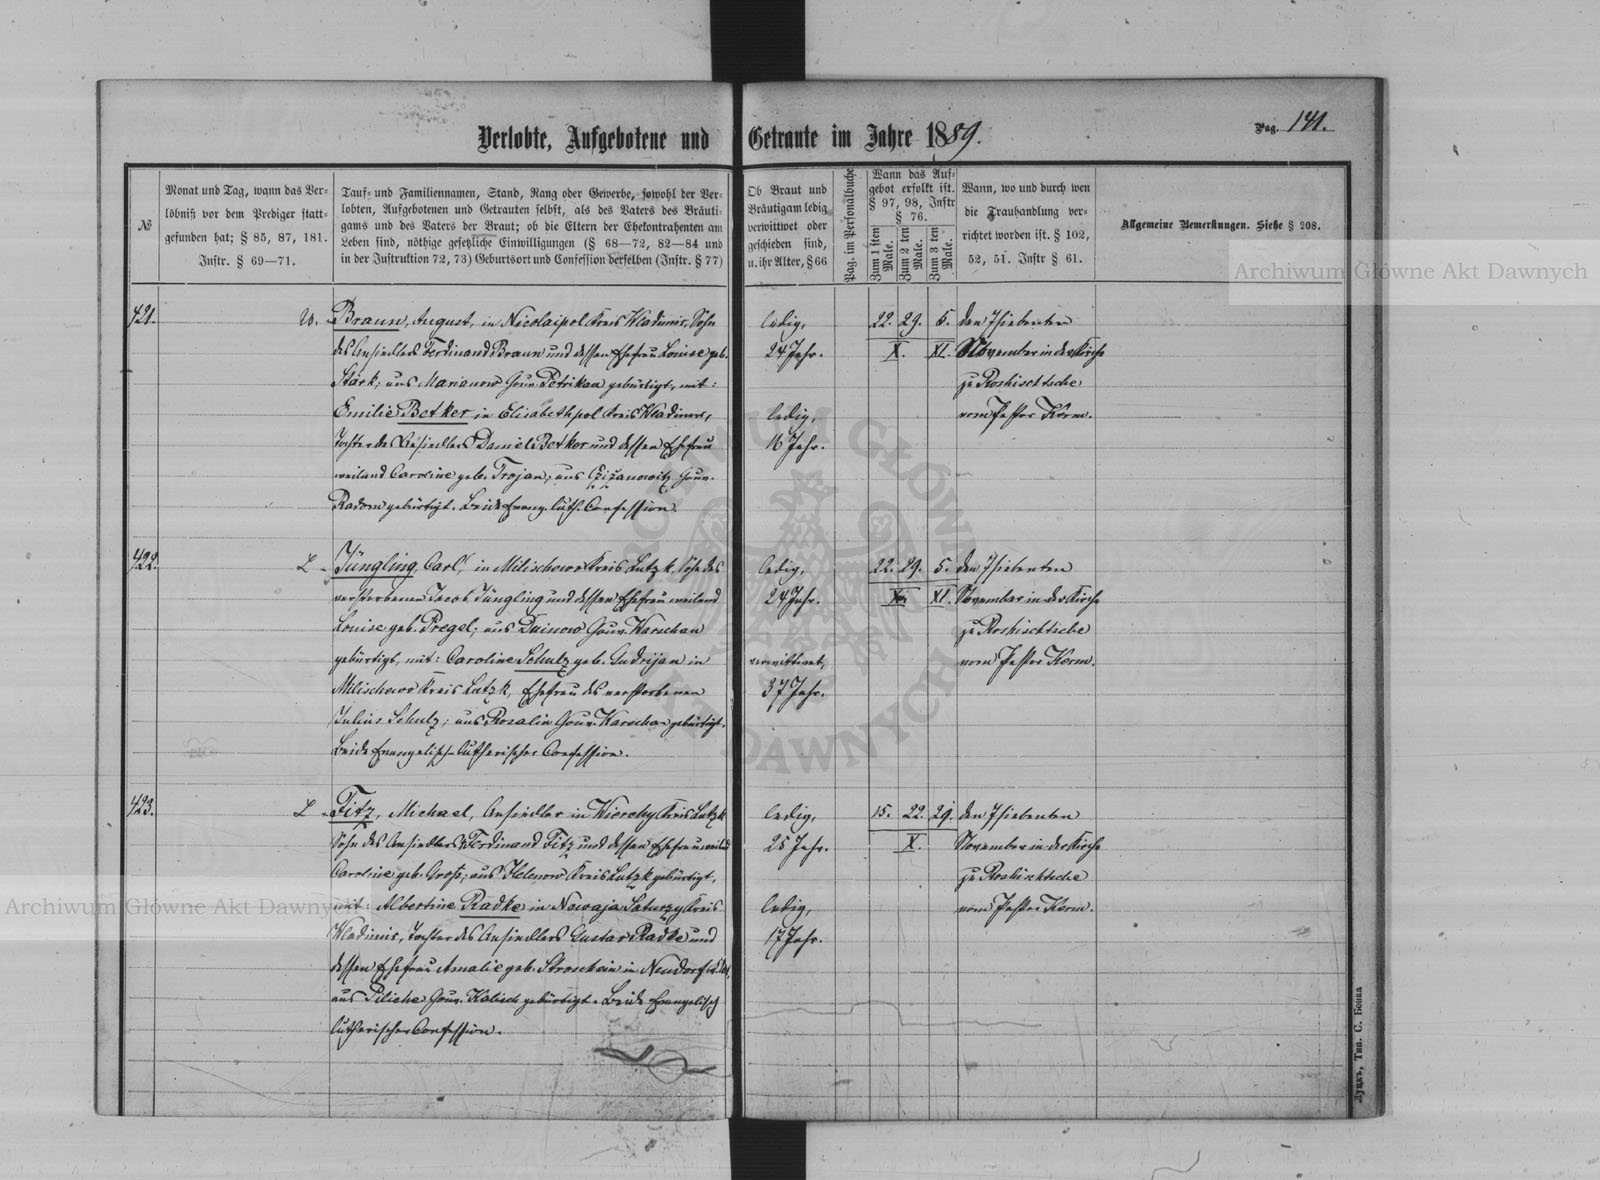 Verlobte, Aufgebotene und Getraute im Jahre 1889.
Pag. 141.
№
Monat und Tag, wann das Ver-
löbniß vor dem Prediger statt-
gefunden hat; § 85, 87, 181.
Instr. § 69—71.
Tauf- und Familiennamen, Stand, Rang oder Gewerbe, sowohl der Ver-
lobten, Aufgebotenen und Getrauten selbst, als des Vaters des Bräuti-
gams und des Vaters der Braut; ob die Eltern der Ehekontrahenten am
Leben sind, nöthige gesetzliche Einwilligungen (§ 68—72, 82—84 und
in der Instruktion 72, 73) Geburtsort und Confession derselben (Instr. § 77)
Ob Braut und
Bräutigam ledig
verwittwet oder
geschieden sind,
u. ihr Alter, § 66
Pag. im Personalbuche
Wann das Auf-
gebot erfolkt ist.
§ 97, 98, Instr
§ 76.
Zum 1 sten Male.
Zum 2 ten Male.
Zum 3 ten Male.
Wann, wo und durch wen
die Trauhandlung ver-
richtet worden ist. § 102,
52, 51. Instr § 61.
Allgemeine Bemerkungen. Siehe § 208.
421.
W. Braun, August, in Nicolaipol Kreis Wladimir, Sohn
des Ansiedlers Ferdinand Braun und dessen Ehefrau Louise geb.
Stärk; aus Marianow Gouv. Petrikau gebürtigt, mit:
Emilie Betker in Elisabethpol Kreis Wladimir,
Tochter des Ansiedlers Daniel Betker und dessen Ehefrau
weiland Caroline geb. Trojan; aus Gouv.
Radom gebürtigt. Beide Evang. luth. Confession.
ledig,
24 Jahr.
ledig,
16 Jahr.
22. 29. 5.
X. XI.
den 7 siebenten
November in der Kirche
zu Roshischtsche
vom Pastor Kerm.
422.
L. Jüngling, Carl, in Milischowo Kreis Lutzk, Sohn des
verstorbenen Jacob Jüngling und dessen Ehefrau weiland
Louise geb. Pregel; aus Duinow Gouv. Warschau
gebürtigt, mit: Caroline Schulz geb. Gudrijan in
Milischowo Kreis Lutzk, Ehefrau des verstorbenen
Julius Schulz; aus Rosalin Gouv. Warschau gebürtigt.
Beide Evangelisch-lutherischer Confession.
ledig,
24 Jahr.
verwittwet,
37 Jahr.
22. 29. 5.
X. XI.
den 7 siebenten
November in der Kirche
zu Roshischtsche
vom Pastor Kerm.
423.
L. Fitz, Michael, Ansiedler in Kreis Lutzk
Sohn des Ansiedlers Ferdinand Fitz und dessen Ehefrau weiland
Caroline geb. Groß; aus Helenow Kreis Lutzk gebürtigt,
mit: Albertine Radke in Nowaja Saturzy Kreis
Wladimir, Tochter des Ansiedlers Gustav Radke und
dessen Ehefrau Amalie geb. Stroschein in Neudorf
aus Piliche Gouv. Kalisch gebürtigt. Beide Evangelisch
lutherischer Confession.
ledig,
25 Jahr.
ledig,
17 Jahr.
15. 22. 29.
X.
den 7 siebenten
November in der Kirche
zu Roshischtsche
vom Pastor Kerm.
Луцкъ, Тип. С. Бонка
Archiwum Główne Akt Dawnych
Archiwum Główne Akt Dawnych